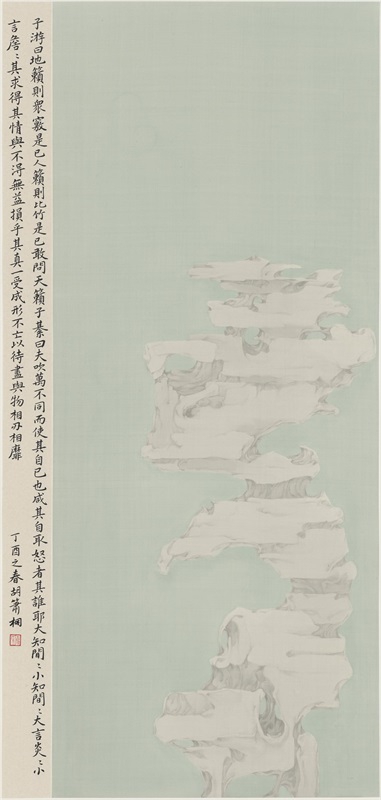 子游曰地籟則眾竅是已人籟則比竹是已敢問天籟子綦曰夫吹萬不同而使其自已也咸其自取怒者其誰耶大知閒〻小知間〻大言炎〻小
言詹〻其求得其情與不得無益損乎其真一受成形不亡以待盡與物相刃相靡
丁酉之春胡箫桐